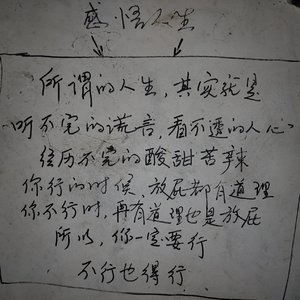 感悟人生
所谓的人生，其实就是
听不完的谎言，看不透的人心
经历不完的酸甜苦辣
你行的时候，放屁都有道理
你不行时，再有道理也是放屁
所以，你一定要行
不行也得行